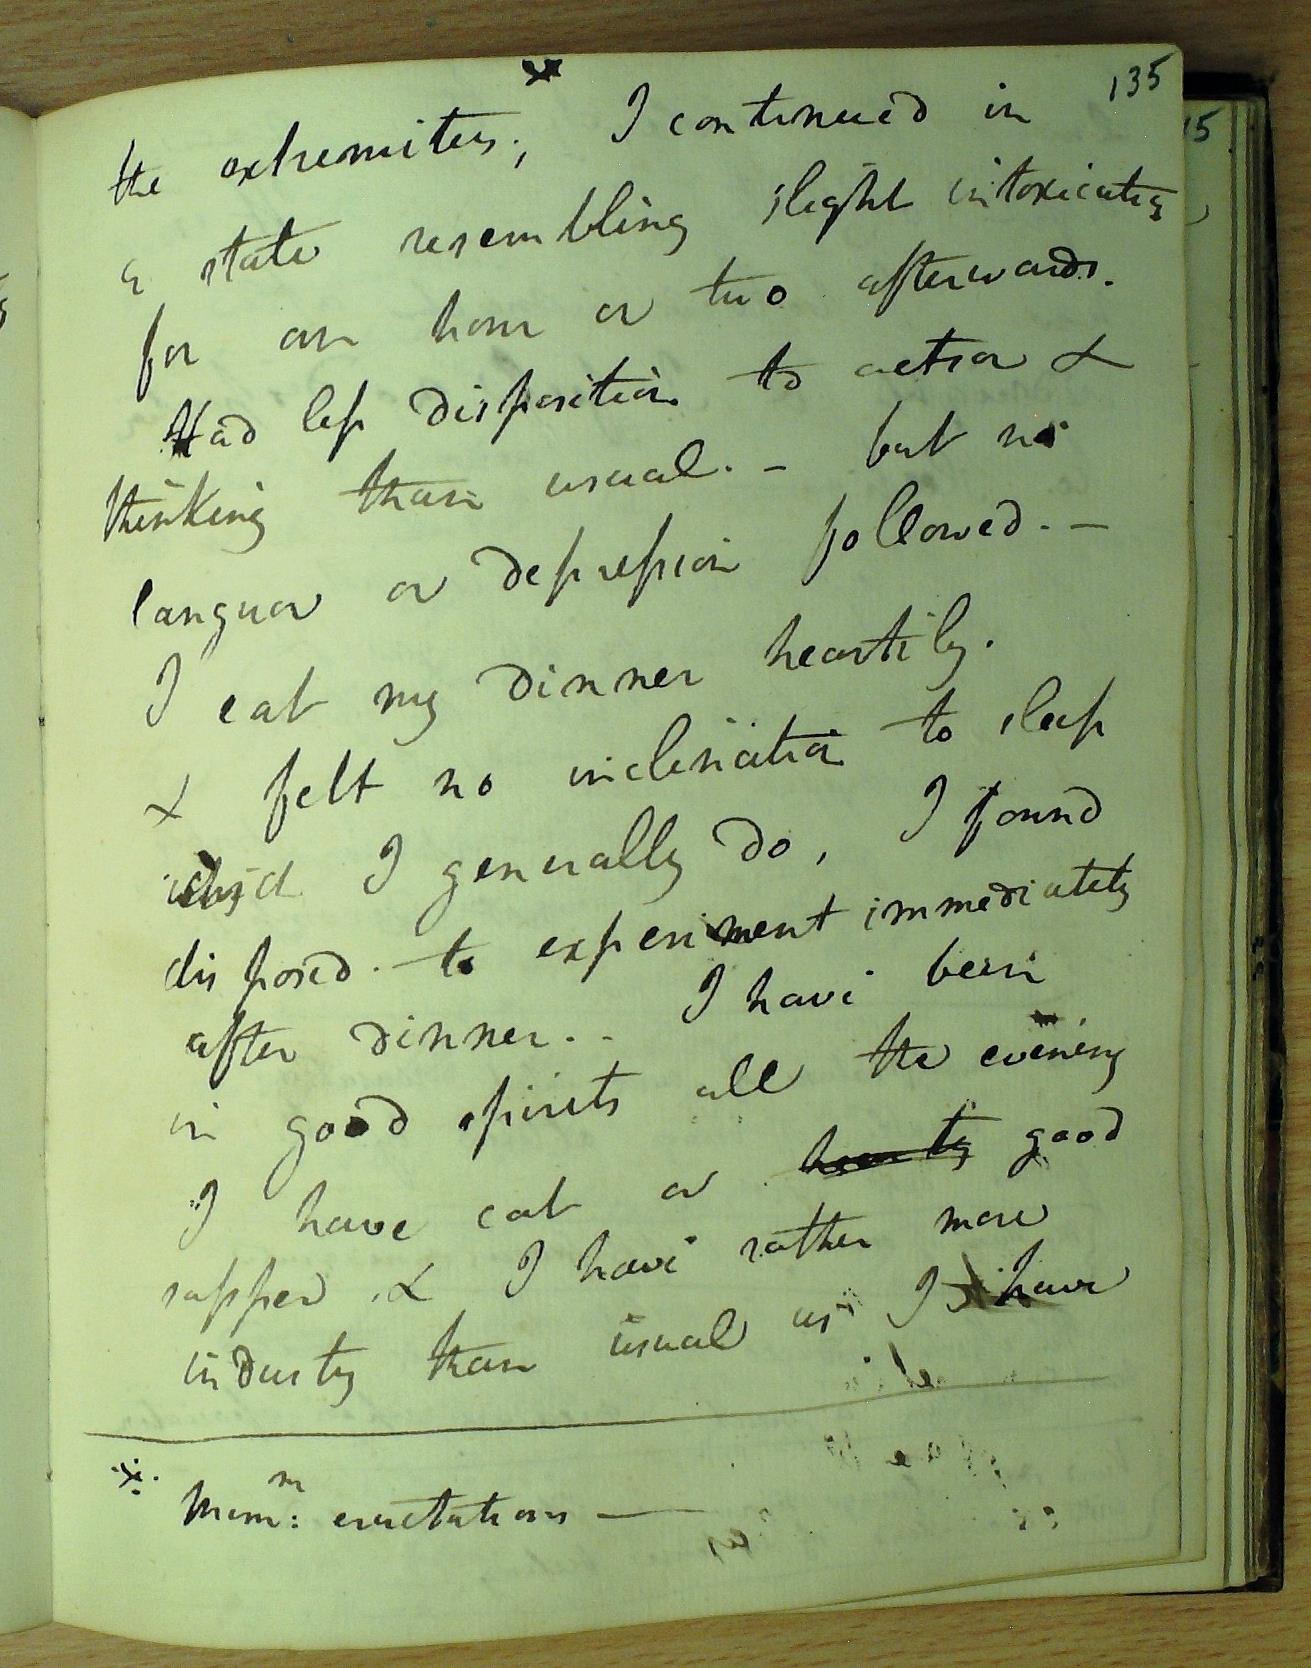 135
the extremities; I continued in
a state resembling slight intoxication
for an hour or two afterwards.
Had less disposition to action &
thinking than usual. - but no
languor or depression followed. -
I eat my dinner heartily.
& felt no inclination to sleep
which I generally do, I found
disposed to experiment immediately
after dinner. - I have been
in good spirits all the evening
I have eat a hearty good
supper & I have rather more
industry than usual as I have
Mem: eructations —